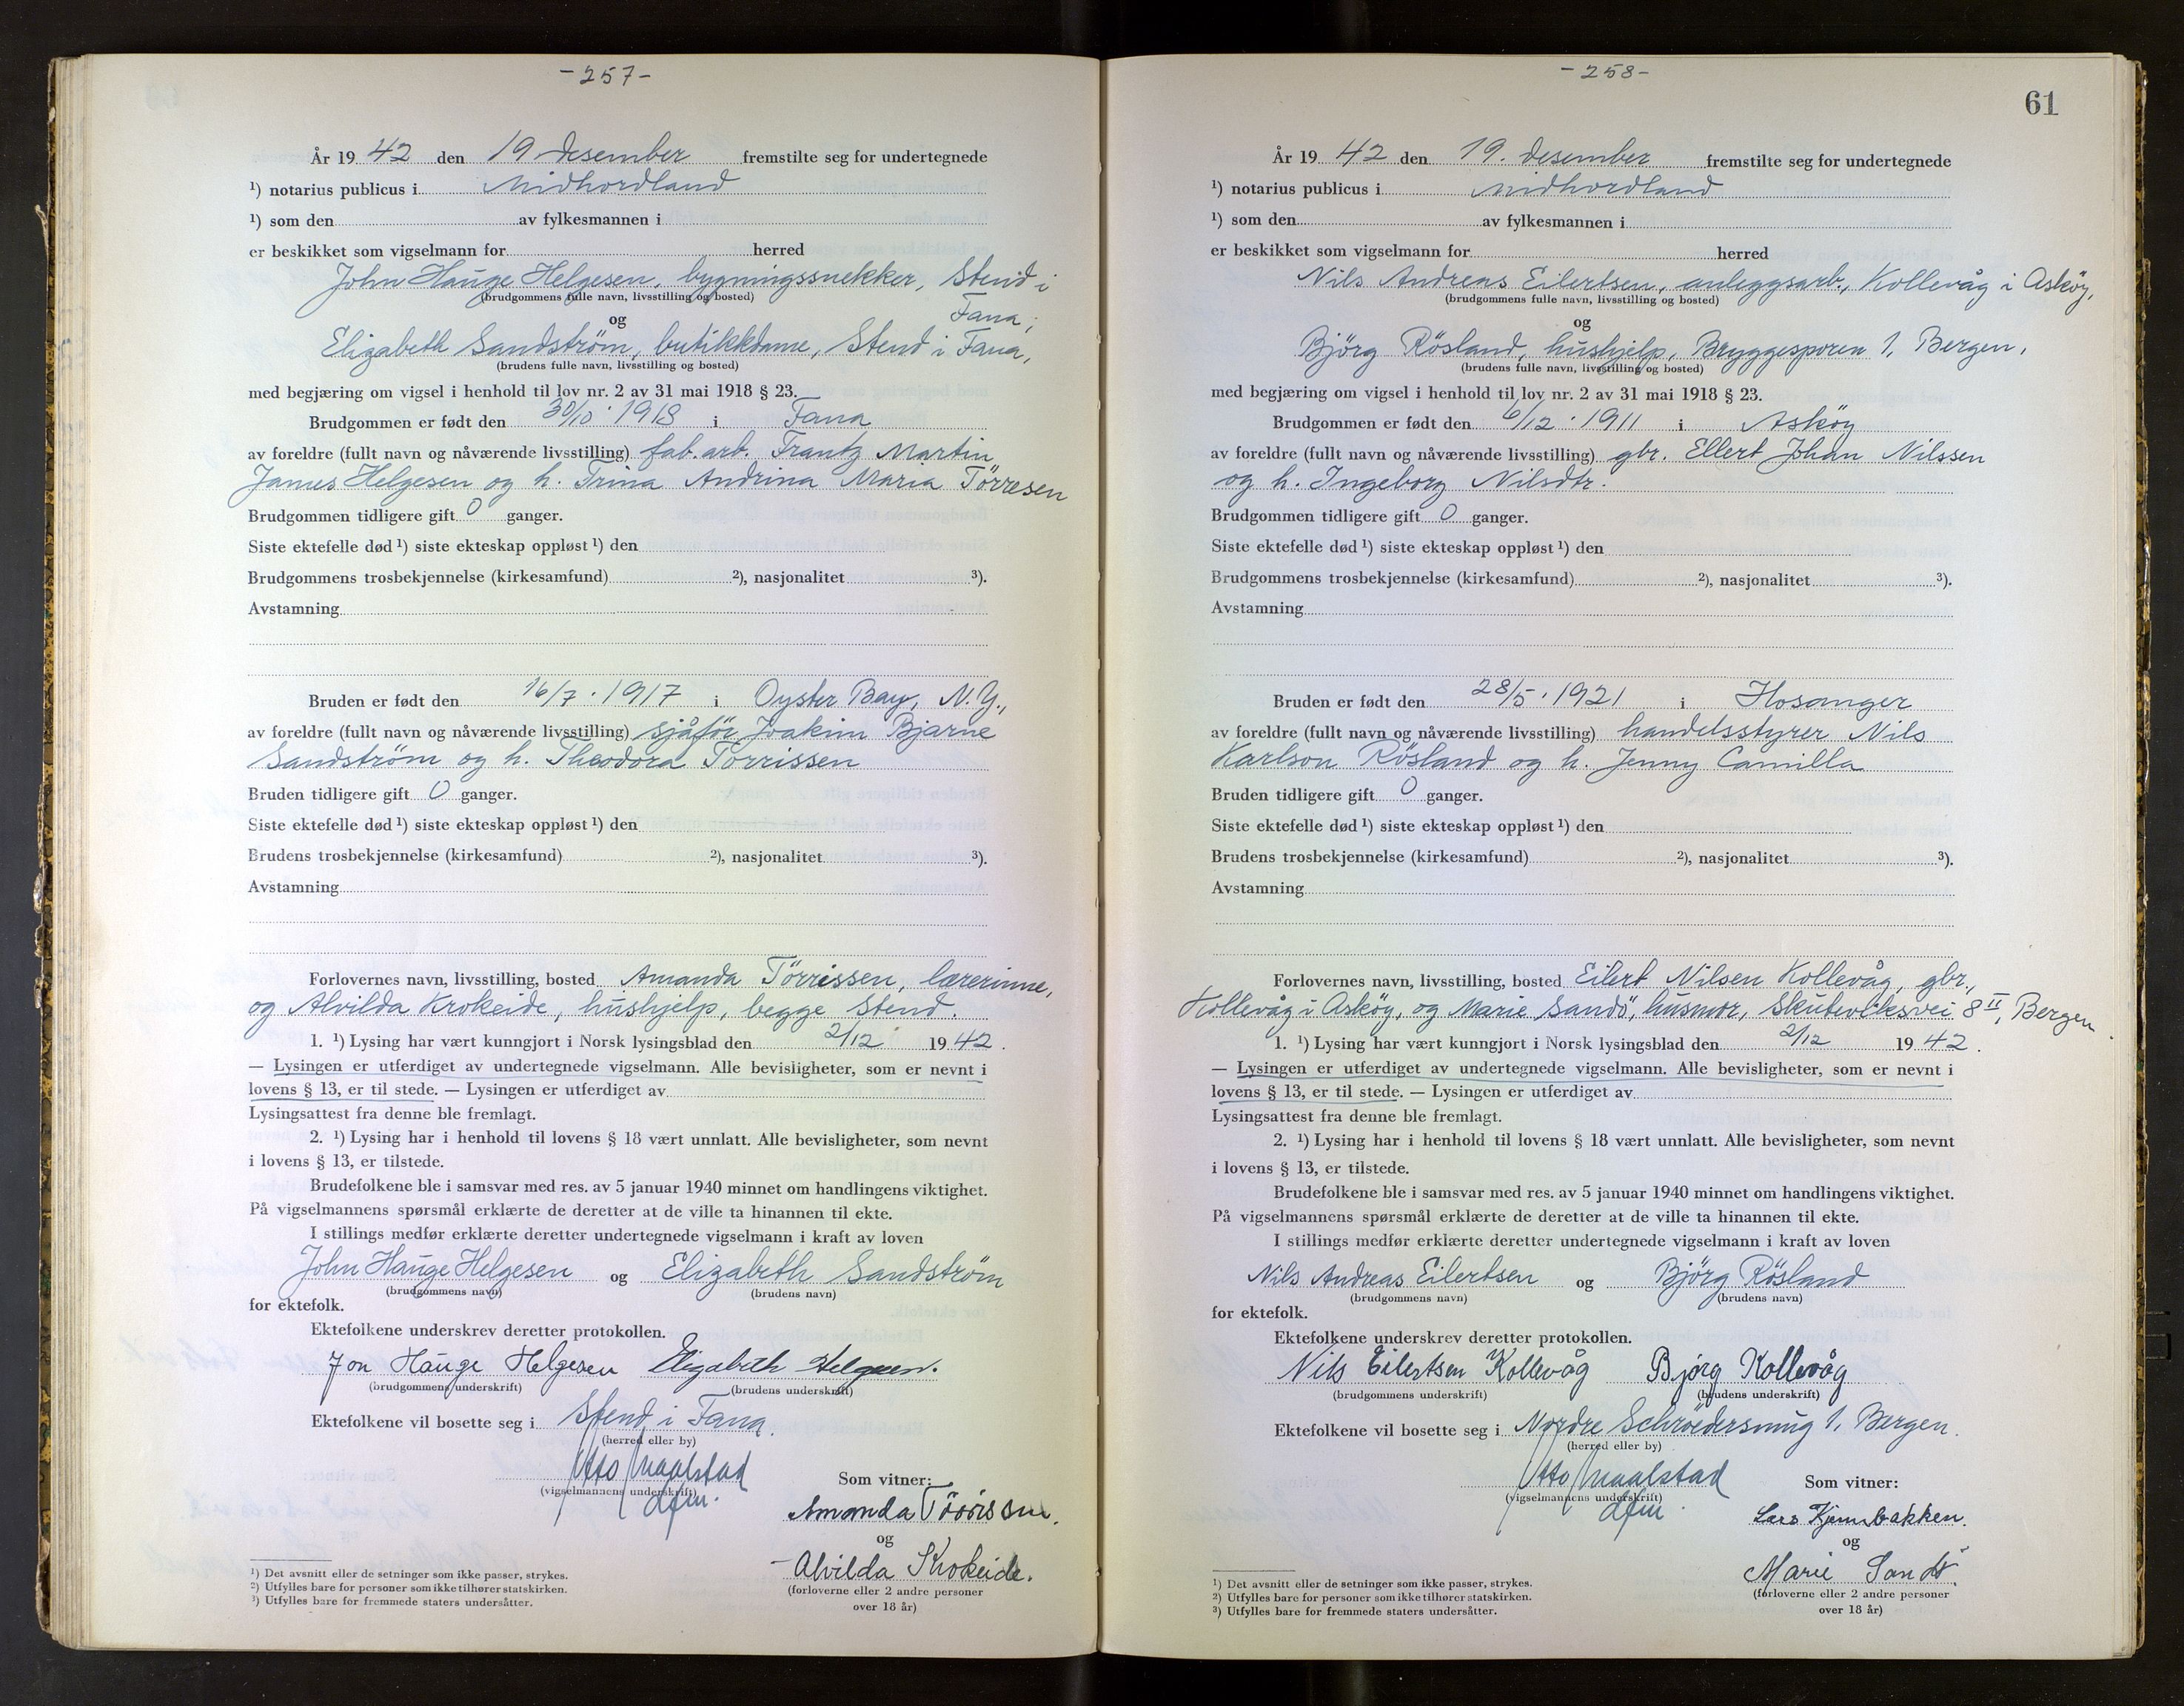 -257-
År 19 42 den 19 desember fremstilte seg for undertegnede
¹) notarius publicus i Midhordland
¹) som den av fylkesmannen i
er beskikket som vigselmann for herred
John Hauge Helgesen, bygningssnekker, Stend i
(brudgommens fulle navn, livsstilling og bosted)
Fana;
og
Elizabeth Sandstrøm, butikkdame, Stend i Fana,
(brudens fulle navn, livsstilling og bosted)
med begjæring om vigsel i henhold til lov nr. 2 av 31 mai 1918 § 23.
Brudgommen er født den 30/10 . 1918 i Fana
av foreldre (fullt navn og nåværende livsstilling) fab.arb. Frantz Martin
James Helgesen og h. Trina Andrina Maria Tørresen
Brudgommen tidligere gift 0 ganger.
Siste ektefelle død ¹) siste ekteskap oppløst ¹) den
Brudgommens trosbekjennelse (kirkesamfund) ²), nasjonalitet ³).
Avstamning
Bruden er født den 16/7 . 1917 i Oyster Bay, N.Y.,
av foreldre (fullt navn og nåværende livsstilling) sjåfør Joakim Bjarne
Sandstrøm og h. Theodora Torrissen
Bruden tidligere gift 0 ganger.
Siste ektefelle død ¹) siste ekteskap oppløst ¹) den
Brudens trosbekjennelse (kirkesamfund) ²), nasjonalitet ³).
Avstamning
Forlovernes navn, livsstilling, bosted Amanda Tørrissen, lærerinne,
og Alvilda Krokeide, hushjelp, begge Stend.
1. ¹) Lysing har vært kunngjort i Norsk lysingsblad den 2/12 19 42.
— Lysingen er utferdiget av undertegnede vigselmann. Alle bevisligheter, som er nevnt i
lovens § 13, er til stede. — Lysingen er utferdiget av
Lysingsattest fra denne ble fremlagt.
2. ¹) Lysing har i henhold til lovens § 18 vært unnlatt. Alle bevisligheter, som nevnt
i lovens § 13, er tilstede.
Brudefolkene ble i samsvar med res. av 5 januar 1940 minnet om handlingens viktighet.
På vigselmannens spørsmål erklærte de deretter at de ville ta hinannen til ekte.
I stillings medfør erklærte deretter undertegnede vigselmann i kraft av loven
John Hauge Helgesen og Elizabeth Sandstrøm
(brudgommens navn) (brudens navn)
for ektefolk.
Ektefolkene underskrev deretter protokollen.
Jon Hauge Helgesen Elizabeth Helgesen.
(brudgommens underskrift) (brudens underskrift)
Ektefolkene vil bosette seg i Stend i Fana.
(herred eller by)
Otto Maalstad
(vigselmannens underskrift)
dfm.
Som vitner:
Amanda Törrissen.
og
Alvilda Krokeide.
(forloverne eller 2 andre personer
over 18 år)
¹) Det avsnitt eller de setninger som ikke passer, strykes.
²) Utfylles bare for personer som ikke tilhører statskirken.
³) Utfylles bare for fremmede staters undersåtter.
-258-
61
År 19 42 den 19. desember fremstilte seg for undertegnede
¹) notarius publicus i Midhordland
¹) som den av fylkesmannen i
er beskikket som vigselmann for herred
Nils Andreas Eilertsen, anleggsarb., Kollevåg i Askøy,
(brudgommens fulle navn, livsstilling og bosted)
og
Bjørg Røsland, hushjelp, Bryggesporen 1, Bergen,
(brudens fulle navn, livsstilling og bosted)
med begjæring om vigsel i henhold til lov nr. 2 av 31 mai 1918 § 23.
Brudgommen er født den 6/12 . 1911 i Askøy
av foreldre (fullt navn og nåværende livsstilling) gbr. Ellert Johan Nilssen
og h. Ingeborg Nilsdtr.
Brudgommen tidligere gift 0 ganger.
Siste ektefelle død ¹) siste ekteskap oppløst ¹) den
Brudgommens trosbekjennelse (kirkesamfund) ²), nasjonalitet ³).
Avstamning
Bruden er født den 28/5 . 1921 i Hosanger
av foreldre (fullt navn og nåværende livsstilling) handelsstyrer Nils
Karlson Røsland og h. Jenny Camilla
Bruden tidligere gift 0 ganger.
Siste ektefelle død ¹) siste ekteskap oppløst ¹) den
Brudens trosbekjennelse (kirkesamfund) ²), nasjonalitet ³).
Avstamning
Forlovernes navn, livsstilling, bosted Eilert Nilsen Kollevåg, gbr.,
Kollevåg i Askøy, og Marie Sandö, husmor, Skuteviksvei 8 II, Bergen
1. ¹) Lysing har vært kunngjort i Norsk lysingsblad den 2/12 19 42.
— Lysingen er utferdiget av undertegnede vigselmann. Alle bevisligheter, som er nevnt i
lovens § 13, er til stede. — Lysingen er utferdiget av
Lysingsattest fra denne ble fremlagt.
2. ¹) Lysing har i henhold til lovens § 18 vært unnlatt. Alle bevisligheter, som nevnt
i lovens § 13, er tilstede.
Brudefolkene ble i samsvar med res. av 5 januar 1940 minnet om handlingens viktighet.
På vigselmannens spørsmål erklærte de deretter at de ville ta hinannen til ekte.
I stillings medfør erklærte deretter undertegnede vigselmann i kraft av loven
Nils Andreas Eilertsen og Bjørg Røsland
(brudgommens navn) (brudens navn)
for ektefolk.
Ektefolkene underskrev deretter protokollen.
Nils Eilertsen Kollevåg Bjørg Kollevåg
(brudgommens underskrift) (brudens underskrift)
Ektefolkene vil bosette seg i Nordre Schrøedersmug 1, Bergen.
(herred eller by)
Otto Maalstad
(vigselmannens underskrift)
dfm
Som vitner:
Lars
og
Marie Sandö
(forloverne eller 2 andre personer
over 18 år)
¹) Det avsnitt eller de setninger som ikke passer, strykes.
²) Utfylles bare for personer som ikke tilhører statskirken.
³) Utfylles bare for fremmede staters undersåtter.